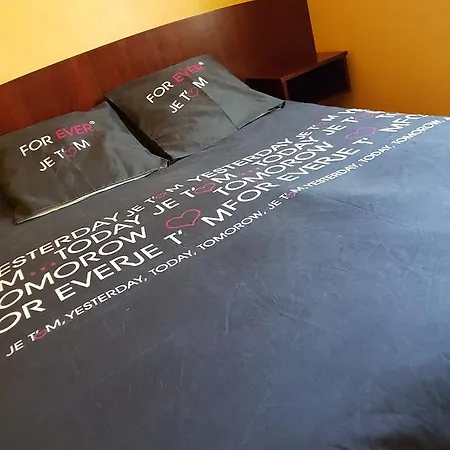 FOR EVER®
JE T'♡M
FOR EVER®
JE T'♡M
YESTERDAY JE T'♡M YESTERDAY JE T'♡M
M... TODAY JE T'♡M... TODAY JE T'♡M
TOMOROW ♡ TOMOROW
FOR EVER JE T'♡MFOR EVERJE T'♡MF
JE T'♡M, YESTERDAY, TODAY, TOMOROW, JE T'♡M, YESTERDAY, TODAY, TOMOROW, JE T'♡M